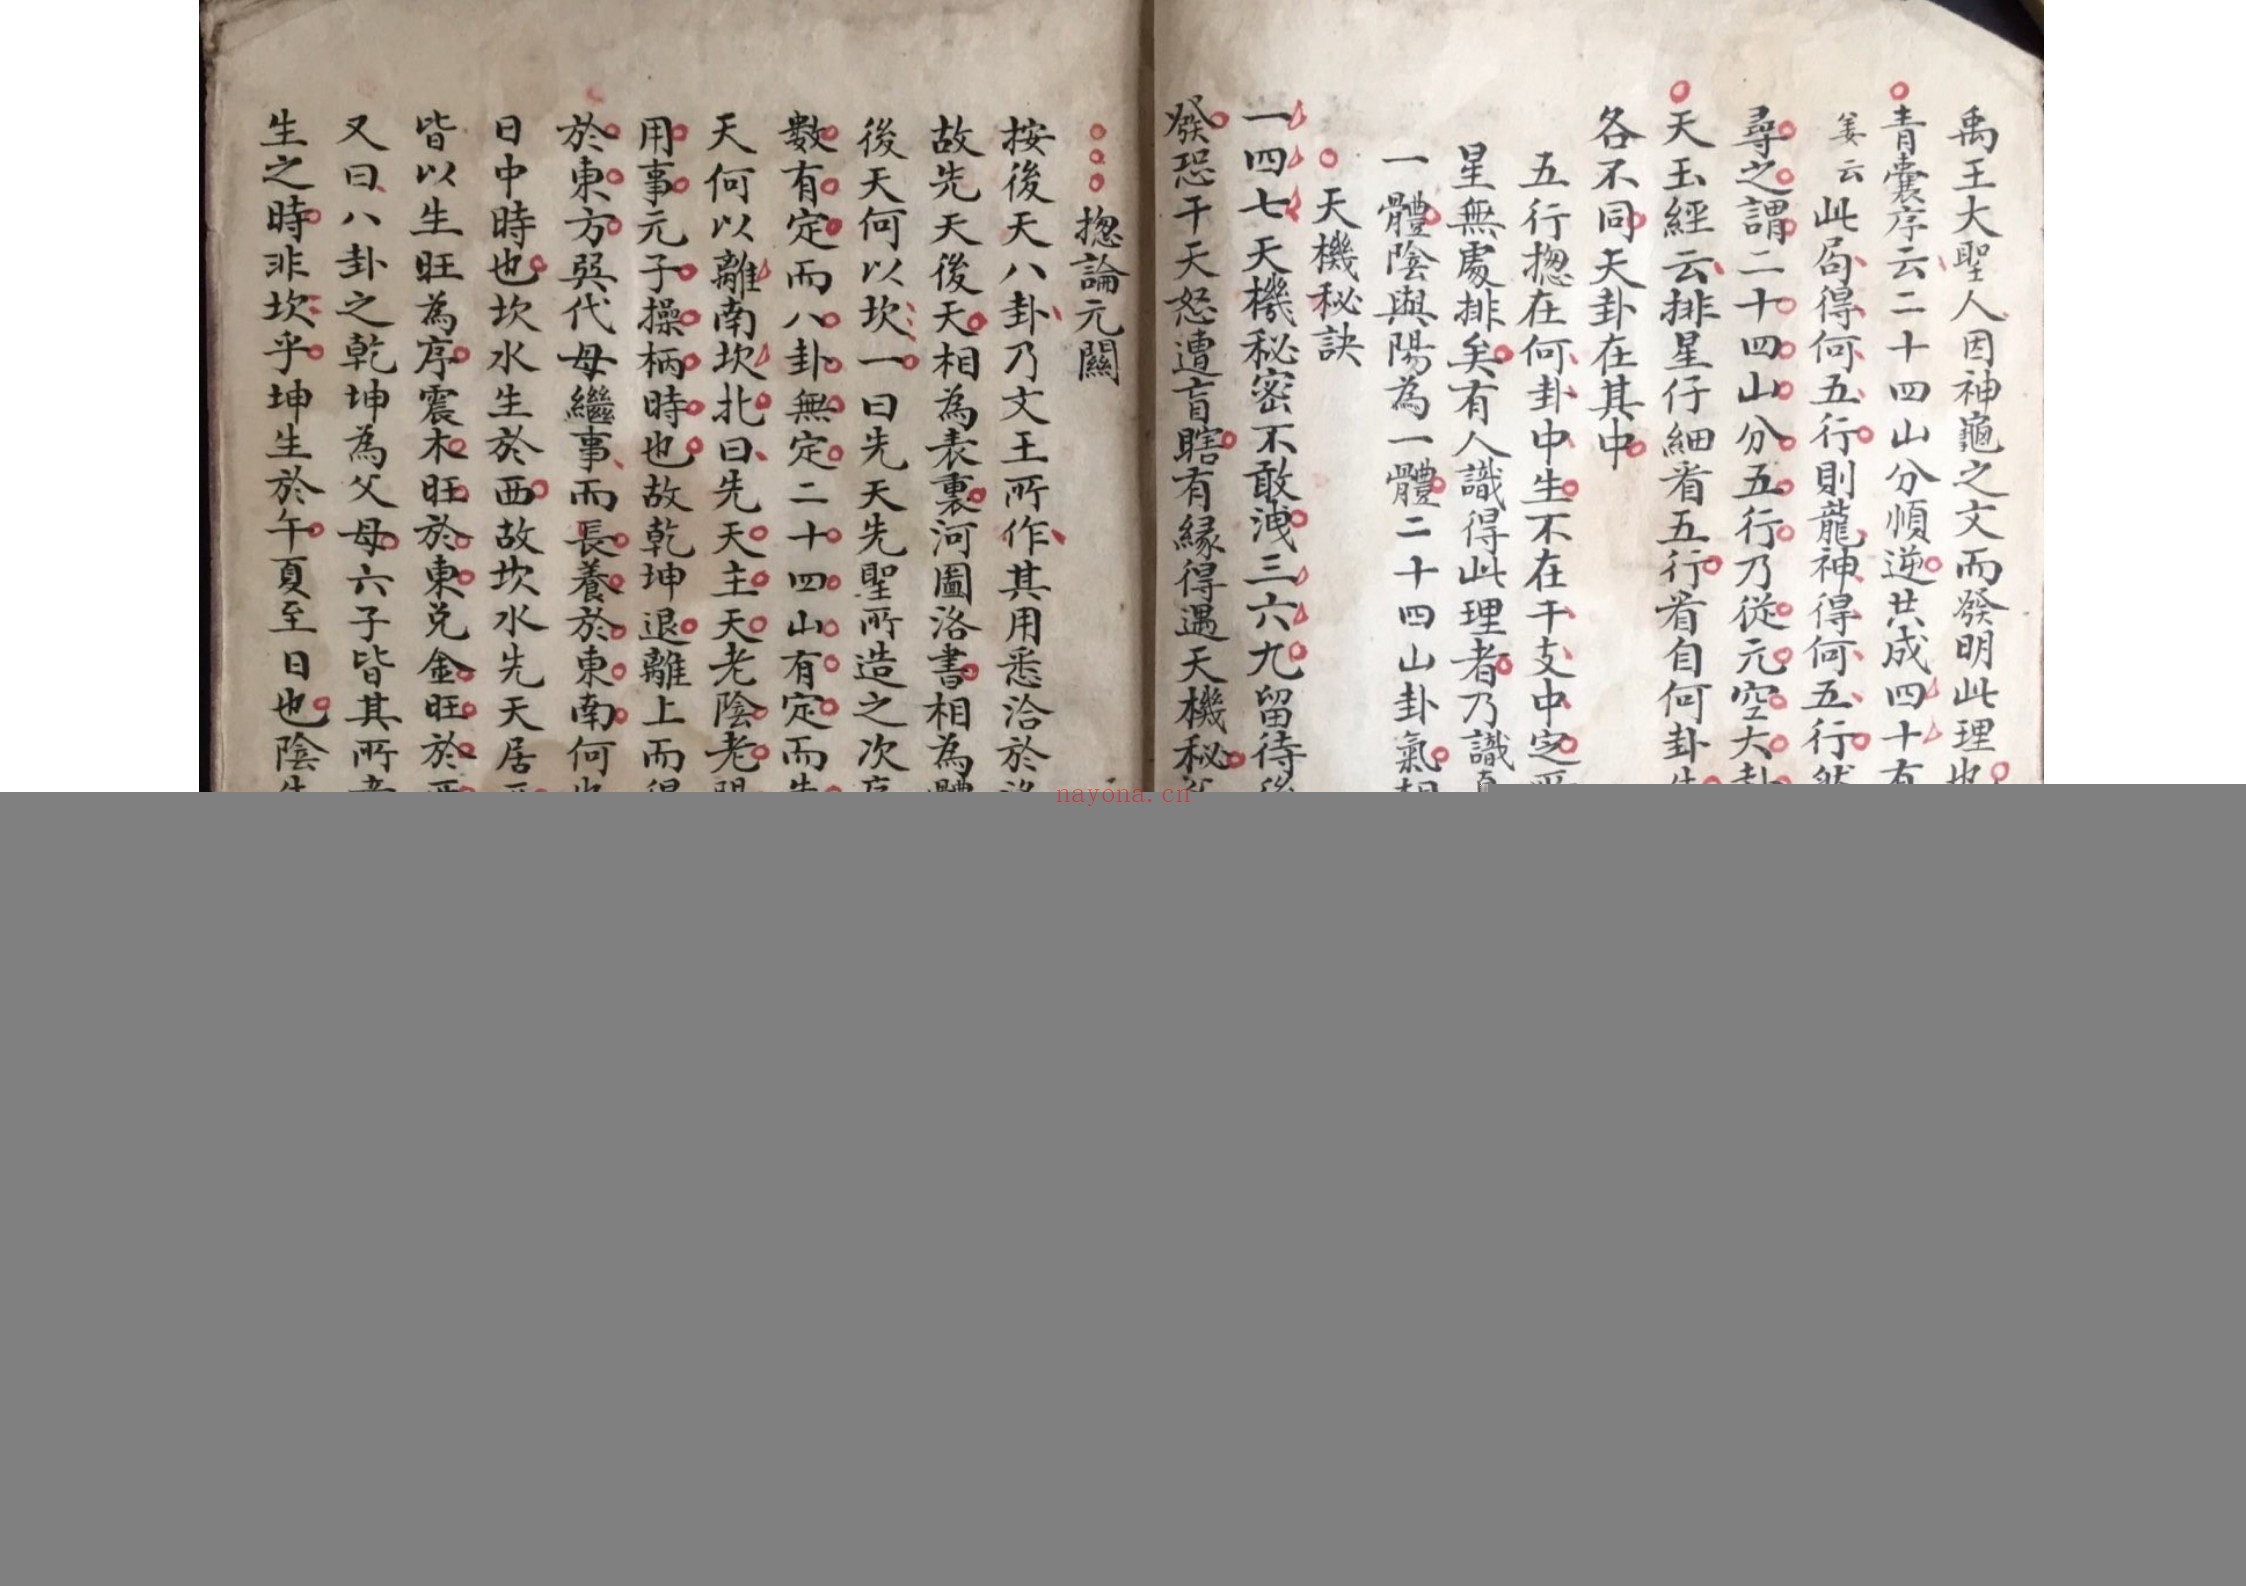 禹王大聖人因神龜之文而發明此理也
青囊序云二十四山分順逆共成四十有
姜云此局得何五行則龍神得何五行然
尋之謂二十四山分五行乃從元空大卦
天玉經云排星仔細看五行看自何卦生
各不同天卦在其中
五行揔在何卦中生不在干支中定
星無處排矣有人識得此理者乃識
一體陰與陽為一體二十四山卦氣相
天機秘訣
一四七天機秘密不敢洩三六九留待後
發恐干天怒遭盲瞎有緣得遇天機秘
揔論元關
按後天八卦乃文王所作其用悉洽於洛
故先天後天相為表裏河圖洛書相為體
後天何以坎一曰先天先聖所造之次序
數有定而八卦無定二十四山有定而先
天何以離南坎北曰先天主天老陰老陽
用事元子操柄時也故乾坤退離上而得
於東方巽代母繼事而長養於東南何也
日中時也坎水生於西故坎水先天居西
皆以生旺為序震木旺於東兌金旺於西
又曰八卦之乾坤為父母六子皆其所
生之時非坎乎坤生於午夏至日也陰生
nayona.cn